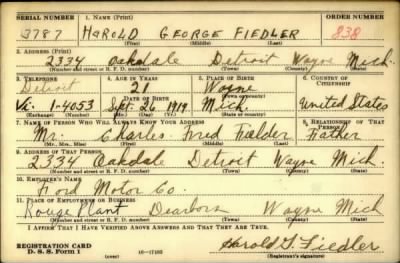 SERIAL NUMBER 1. NAME (Print) ORDER NUMBER
3787 HAROLD GEORGE FIEDLER 838
(First) (Middle) (Last)
2. ADDRESS (Print)
2334 Oakdale Detroit Wayne Mich.
(Number and street or R. F. D. number) (Town) (County) (State)
3. TELEPHONE 4. AGE IN YEARS 5. PLACE OF BIRTH 6. COUNTRY OF CITIZENSHIP
Detroit 21 Wayne
DATE OF BIRTH (Town or county)
Vi. 1-4053 Sept. 26 1919 Mich. United States
(Exchange) (Number) (Mo.) (Day) (Yr.) (State or country)
7. NAME OF PERSON WHO WILL ALWAYS KNOW YOUR ADDRESS 8. RELATIONSHIP OF THAT PERSON
Mr. Charles Fred Fielder Father
(Mr., Mrs., Miss) (First) (Middle) (Last)
9. ADDRESS OF THAT PERSON
2334 Oakdale Detroit Wayne Mich.
(Number and street or R. F. D. number) (Town) (County) (State)
10. EMPLOYER'S NAME
Ford Motor Co.
11. PLACE OF EMPLOYMENT OR BUSINESS
Rouge Plant Dearborn Wayne Mich
(Number and street or R. F. D. number) (Town) (County) (State)
I AFFIRM THAT I HAVE VERIFIED ABOVE ANSWERS AND THAT THEY ARE TRUE.
REGISTRATION CARD
D. S. S. Form 1 16-17105 Harold G. Fiedler
(Registrant's signature)